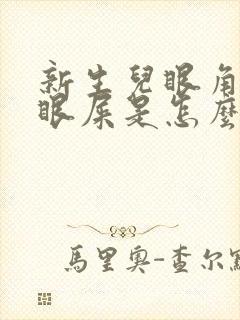 新生兒眼角
眼屎是怎麼
馬里奧-查尔